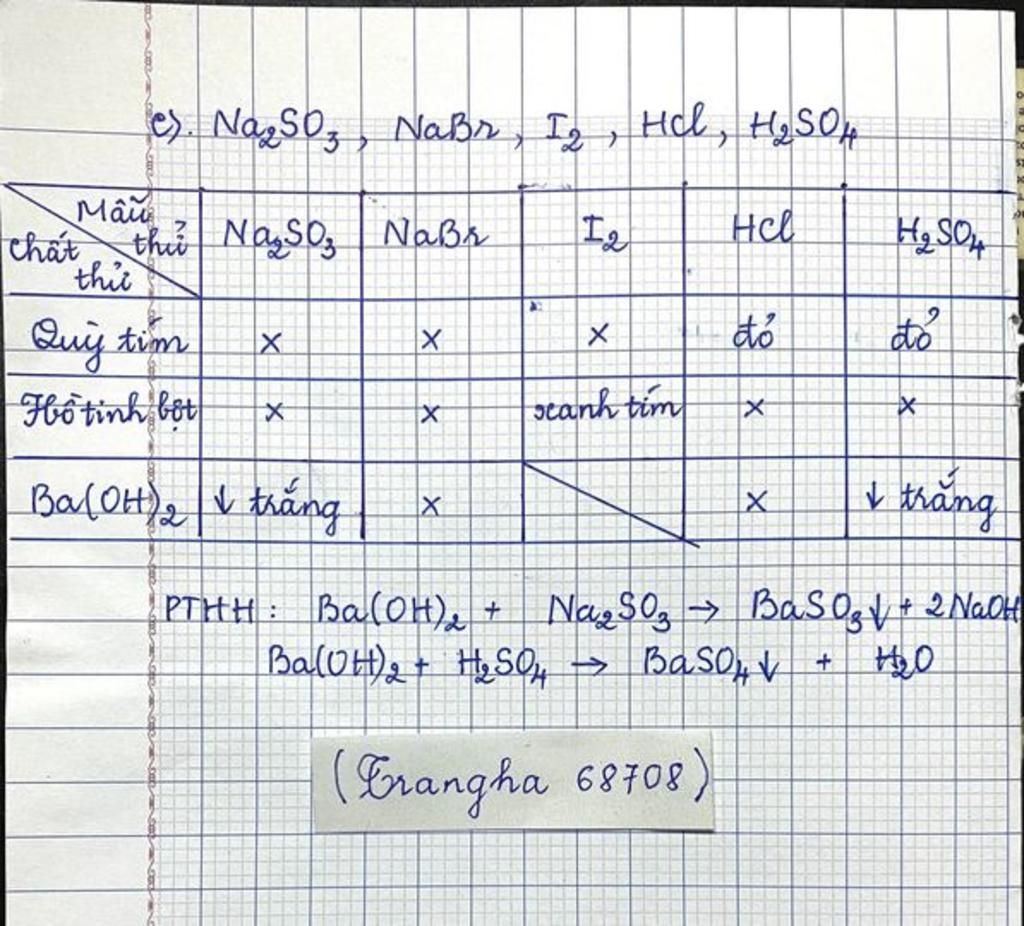 e). Na₂SO₃, NaBr, I₂, HCl, H₂SO₄
Mẫu thử
Chất thử
Na₂SO₃ NaBr I₂ HCl H₂SO₄
Quỳ tím x x x đỏ đỏ
Hồ tinh bột x x xanh tím x x
Ba(OH)₂ ↓ trắng x x ↓ trắng
PTHH: Ba(OH)₂ + Na₂SO₃ → BaSO₃↓ + 2NaOH
Ba(OH)₂ + H₂SO₄ → BaSO₄↓ + H₂O
(Trangha 68708)